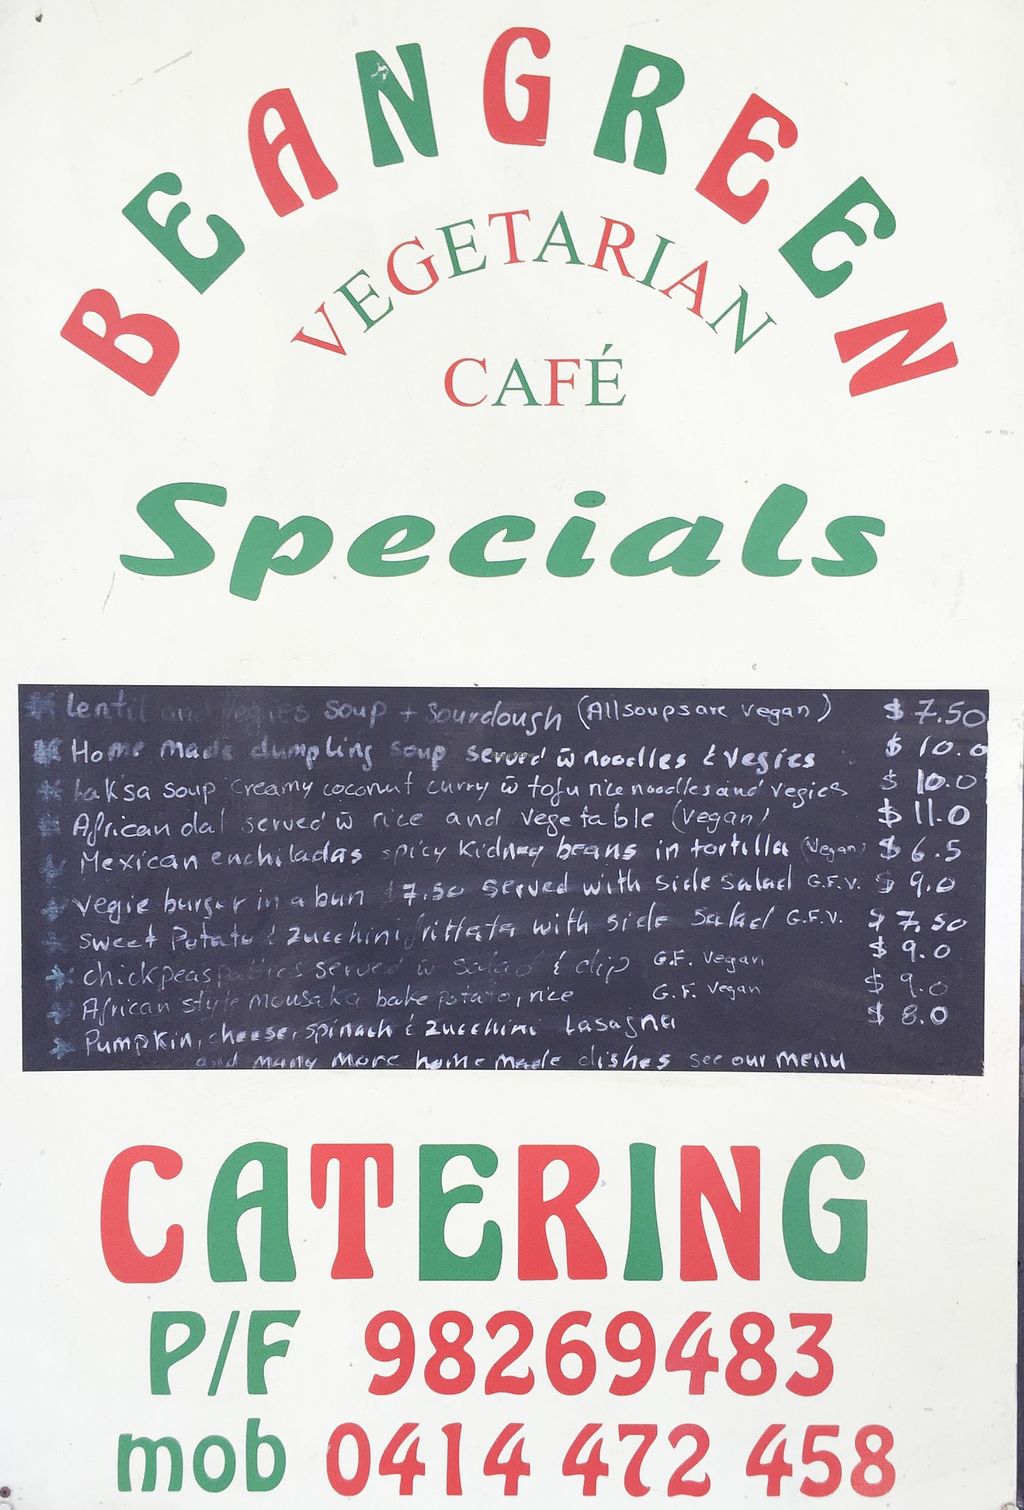 BEANGREEN
VEGETARIAN
CAFÉ
Specials
* Lentil and Vegies soup + Sourdough (All soups are vegan) $7.50
* Home made dumpling soup served w̄ noodles & vegies $10.0
* Laksa soup creamy coconut curry w̄ tofu rice noodles and vegies $10.0
* African dal served w̄ rice and vegetable (vegan) $11.0
* Mexican enchiladas spicy kidney beans in tortilla (vegan) $6.5
* Vegie burger in a bun $7.50 served with side salad G.F.V. $9.0
* Sweet Potato & zucchini frittata with side salad G.F.V. $7.50
* chickpeas patties served w̄ salad & dip G.F. Vegan $9.0
* African style mousaka bake potato, rice G.F. Vegan $9.0
* Pumpkin, cheese, spinach & zucchini Lasagna $8.0
and many more home made dishes see our menu
CATERING
P/F 98269483
mob 0414 472 458